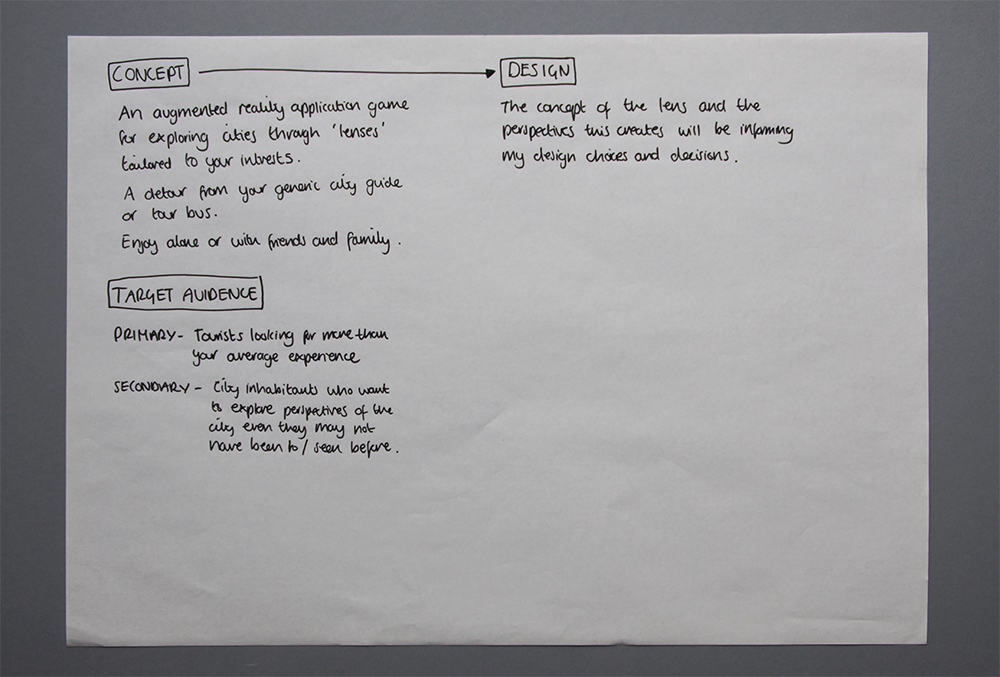 CONCEPT
An augmented reality application game
for exploring cities through 'lenses'
tailored to your interests.
A detour from your generic city guide
or tour bus.
Enjoy alone or with friends and family.
TARGET AUIDENCE
PRIMARY- Tourists looking for more than
your average experience
SECONDARY - City inhabitants who want
to explore perspectives of the
city even they may not
have been to / seen before.
DESIGN
The concept of the lens and the
perspectives this creates will be informing
my design choices and decisions.